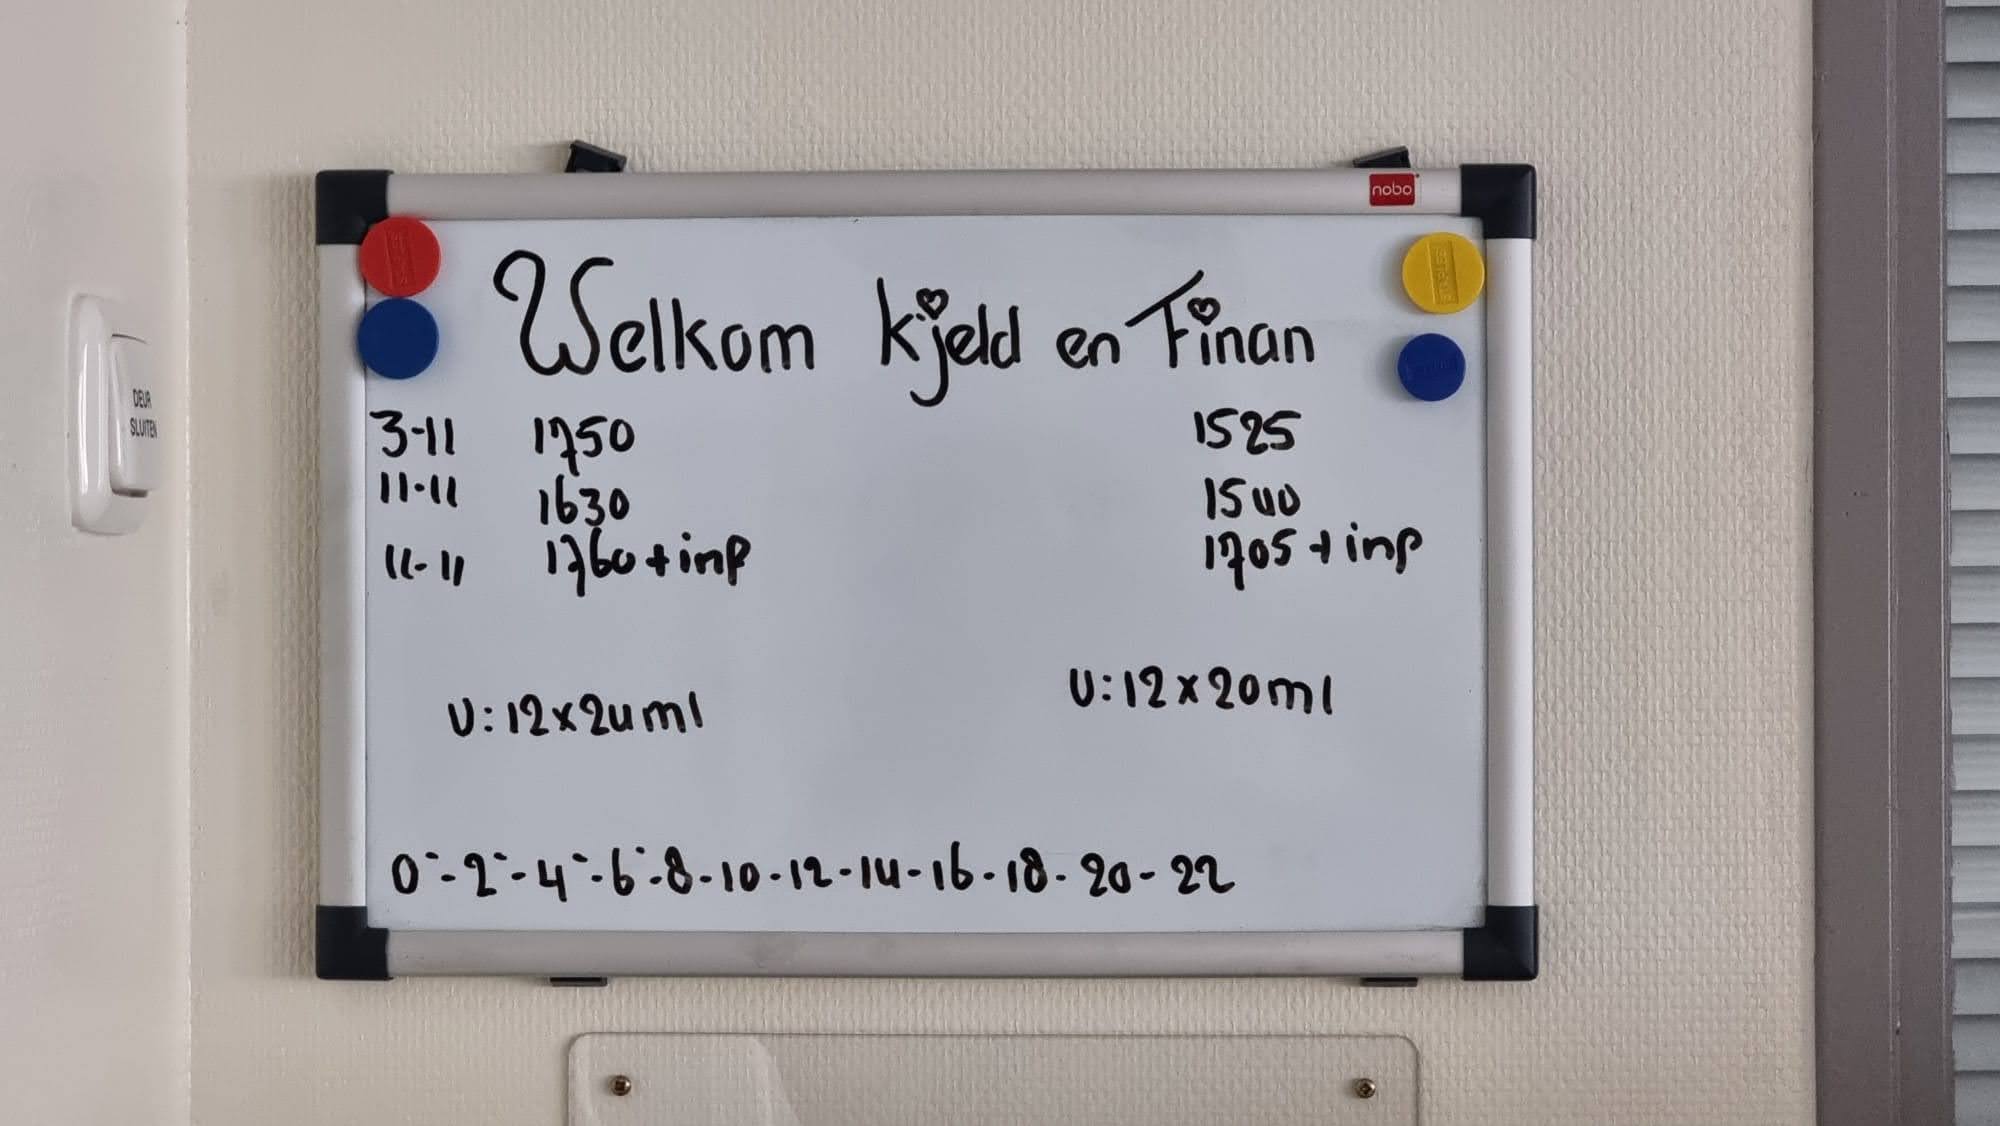 nobo
Welkom Kjeld en Finan
3-11 1750 1525
11-11 1630 1540
11-11 1760+inf 1705+inf
V: 12x24ml V: 12x20ml
0-2-4-6-8-10-12-14-16-18-20-22
DEUR
SLUITEN